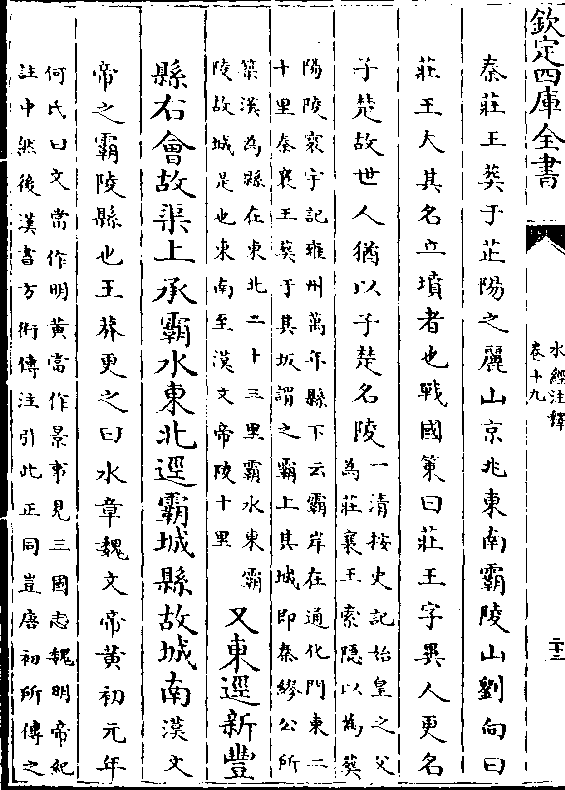 欽定四庫全書
水經注釋
卷十九
二十三
秦莊王葬于芷陽之麗山京兆東南霸陵山劉向曰
莊王大其名立墳者也戰國策曰莊王字異人更名
子楚故世人猶以子楚名陵
一清按史記始皇之父
為莊襄王索隱以為葬
陽陵寰宇記雍州萬年縣下云霸岸在通化門東二
十里秦襄王葬于其坂謂之霸上其城即秦繆公所
築漢為縣在東北二十三里霸水東霸
陵故城是也東南至漢文帝陵十里
又東逕新豐
縣右會故渠上承霸水東北逕霸城縣故城南漢文
帝之霸陵縣也王莽更之曰水章魏文帝黃初元年
何氏曰文當作明黃當作景事見三國志魏明帝紀
註中然後漢書方術傳注引此正同豈唐初所傳之